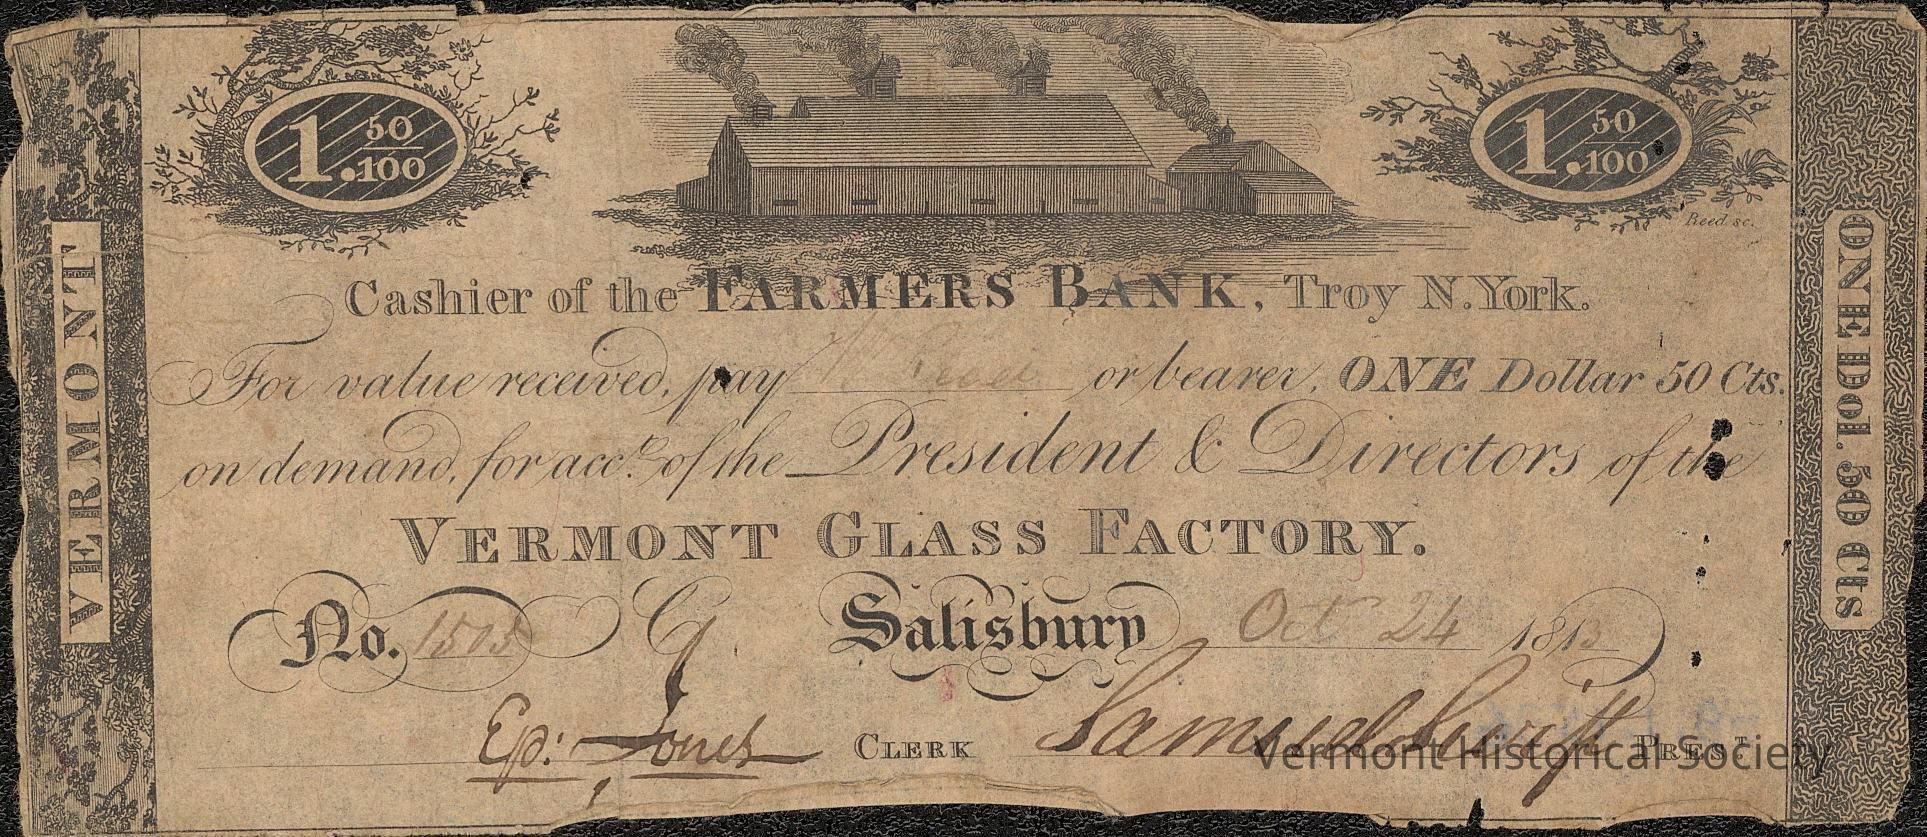 1. 50/100
1. 50/100
Reed. sc.
Cashier of the FARMERS BANK, Troy N. York.
For value received, pay or bearer, ONE Dollar 50 Cts.
on demand, for acct. of the President & Directors of the
VERMONT GLASS FACTORY.
No. 1505 Salisbury Oct 24 1813
Ep: Jones CLERK Samuel Swift PREST
VERMONT
ONE Dol. 50 Cts
Vermont Historical Society